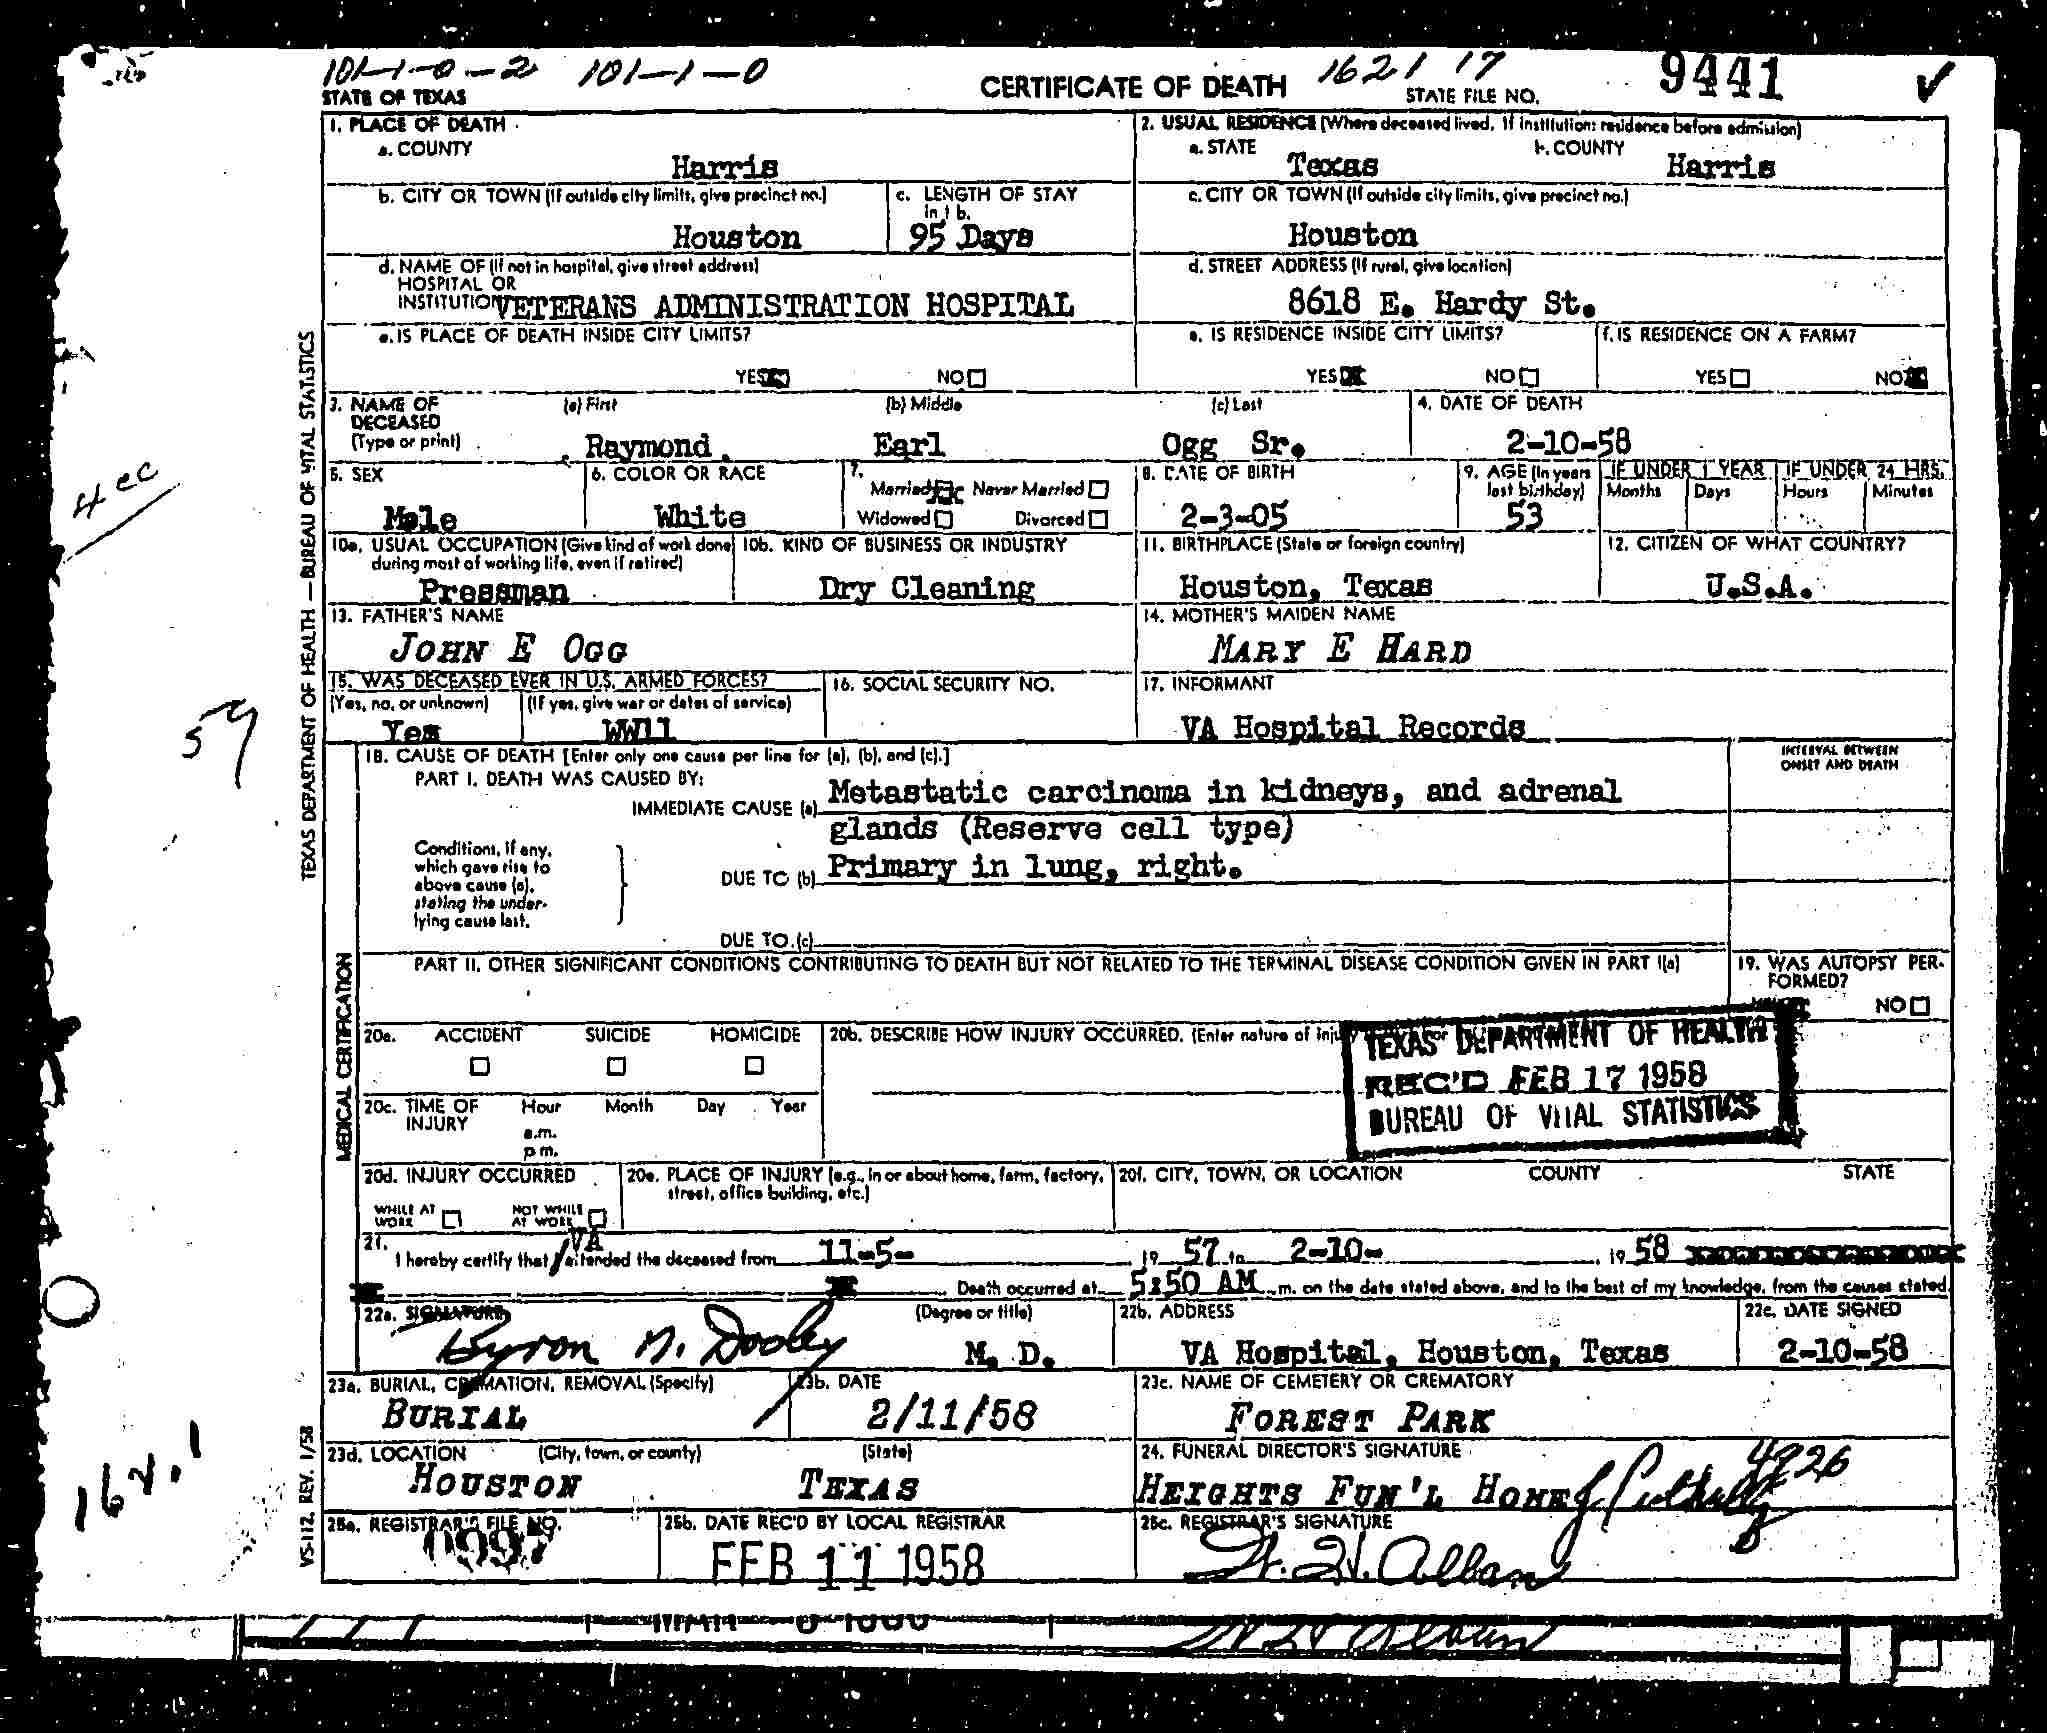 101-1-0-2 101-1-0 1621 17 9441 ✓
STATE OF TEXAS CERTIFICATE OF DEATH STATE FILE NO.
1. PLACE OF DEATH 2. USUAL RESIDENCE (Where deceased lived. If institution: residence before admission)
a. COUNTY Harris a. STATE Texas b. COUNTY Harris
b. CITY OR TOWN (If outside city limits, give precinct no.) Houston c. LENGTH OF STAY in 1 b. 95 Days c. CITY OR TOWN (If outside city limits, give precinct no.) Houston
d. NAME OF (If not in hospital, give street address) HOSPITAL OR INSTITUTION VETERANS ADMINISTRATION HOSPITAL d. STREET ADDRESS (If rural, give location) 8618 E. Hardy St.
e. IS PLACE OF DEATH INSIDE CITY LIMITS? e. IS RESIDENCE INSIDE CITY LIMITS? f. IS RESIDENCE ON A FARM?
YES NO YES NO YES NO
3. NAME OF DECEASED (Type or print) (a) First Raymond (b) Middle Earl (c) Last Ogg Sr. 4. DATE OF DEATH 2-10-58
5. SEX Male 6. COLOR OR RACE White 7. Married Never Married Widowed Divorced 8. DATE OF BIRTH 2-3-05 9. AGE (In years last birthday) 53 IF UNDER 1 YEAR Months Days IF UNDER 24 HRS. Hours Minutes
10a. USUAL OCCUPATION (Give kind of work done during most of working life, even if retired) Pressman 10b. KIND OF BUSINESS OR INDUSTRY Dry Cleaning 11. BIRTHPLACE (State or foreign country) Houston, Texas 12. CITIZEN OF WHAT COUNTRY? U.S.A.
13. FATHER'S NAME JOHN E OGG 14. MOTHER'S MAIDEN NAME MARY E HARD
15. WAS DECEASED EVER IN U.S. ARMED FORCES? (Yes, no, or unknown) Yes (If yes, give war or dates of service) WW11 16. SOCIAL SECURITY NO. 17. INFORMANT VA Hospital Records
18. CAUSE OF DEATH [Enter only one cause per line for (a), (b), and (c).] INTERVAL BETWEEN ONSET AND DEATH
PART I. DEATH WAS CAUSED BY:
IMMEDIATE CAUSE (a) Metastatic carcinoma in kidneys, and adrenal
glands (Reserve cell type)
Conditions, if any, which gave rise to above cause (a), stating the underlying cause last.
DUE TO (b) Primary in lung, right.
DUE TO (c)
PART II. OTHER SIGNIFICANT CONDITIONS CONTRIBUTING TO DEATH BUT NOT RELATED TO THE TERMINAL DISEASE CONDITION GIVEN IN PART I(a) 19. WAS AUTOPSY PERFORMED?
NO
20a. ACCIDENT SUICIDE HOMICIDE 20b. DESCRIBE HOW INJURY OCCURRED. (Enter nature of injury
TEXAS DEPARTMENT OF HEALTH
REC'D FEB 17 1958
BUREAU OF VITAL STATISTICS
20c. TIME OF INJURY Hour a.m. p.m. Month Day Year
20d. INJURY OCCURRED WHILE AT WORK NOT WHILE AT WORK 20e. PLACE OF INJURY (e.g., in or about home, farm, factory, street, office building, etc.) 20f. CITY, TOWN, OR LOCATION COUNTY STATE
21. I hereby certify that VA attended the deceased from 11-5- 19 57 to 2-10- 19 58
Death occurred at 5:50 AM m. on the date stated above, and to the best of my knowledge, from the causes stated.
22a. SIGNATURE Byron N. Dooley (Degree or title) M. D. 22b. ADDRESS VA Hospital, Houston, Texas 22c. DATE SIGNED 2-10-58
23a. BURIAL, CREMATION, REMOVAL (Specify) BURIAL 23b. DATE 2/11/58 23c. NAME OF CEMETERY OR CREMATORY FOREST PARK
23d. LOCATION (City, town, or county) HOUSTON (State) TEXAS 24. FUNERAL DIRECTOR'S SIGNATURE HEIGHTS FUN'L HOME 4926
25a. REGISTRAR'S FILE NO. 0997 25b. DATE REC'D BY LOCAL REGISTRAR FEB 11 1958 25c. REGISTRAR'S SIGNATURE W. H. Alban
TEXAS DEPARTMENT OF HEALTH — BUREAU OF VITAL STATISTICS
MEDICAL CERTIFICATION
VS-112, REV. 1/58
59
162.1